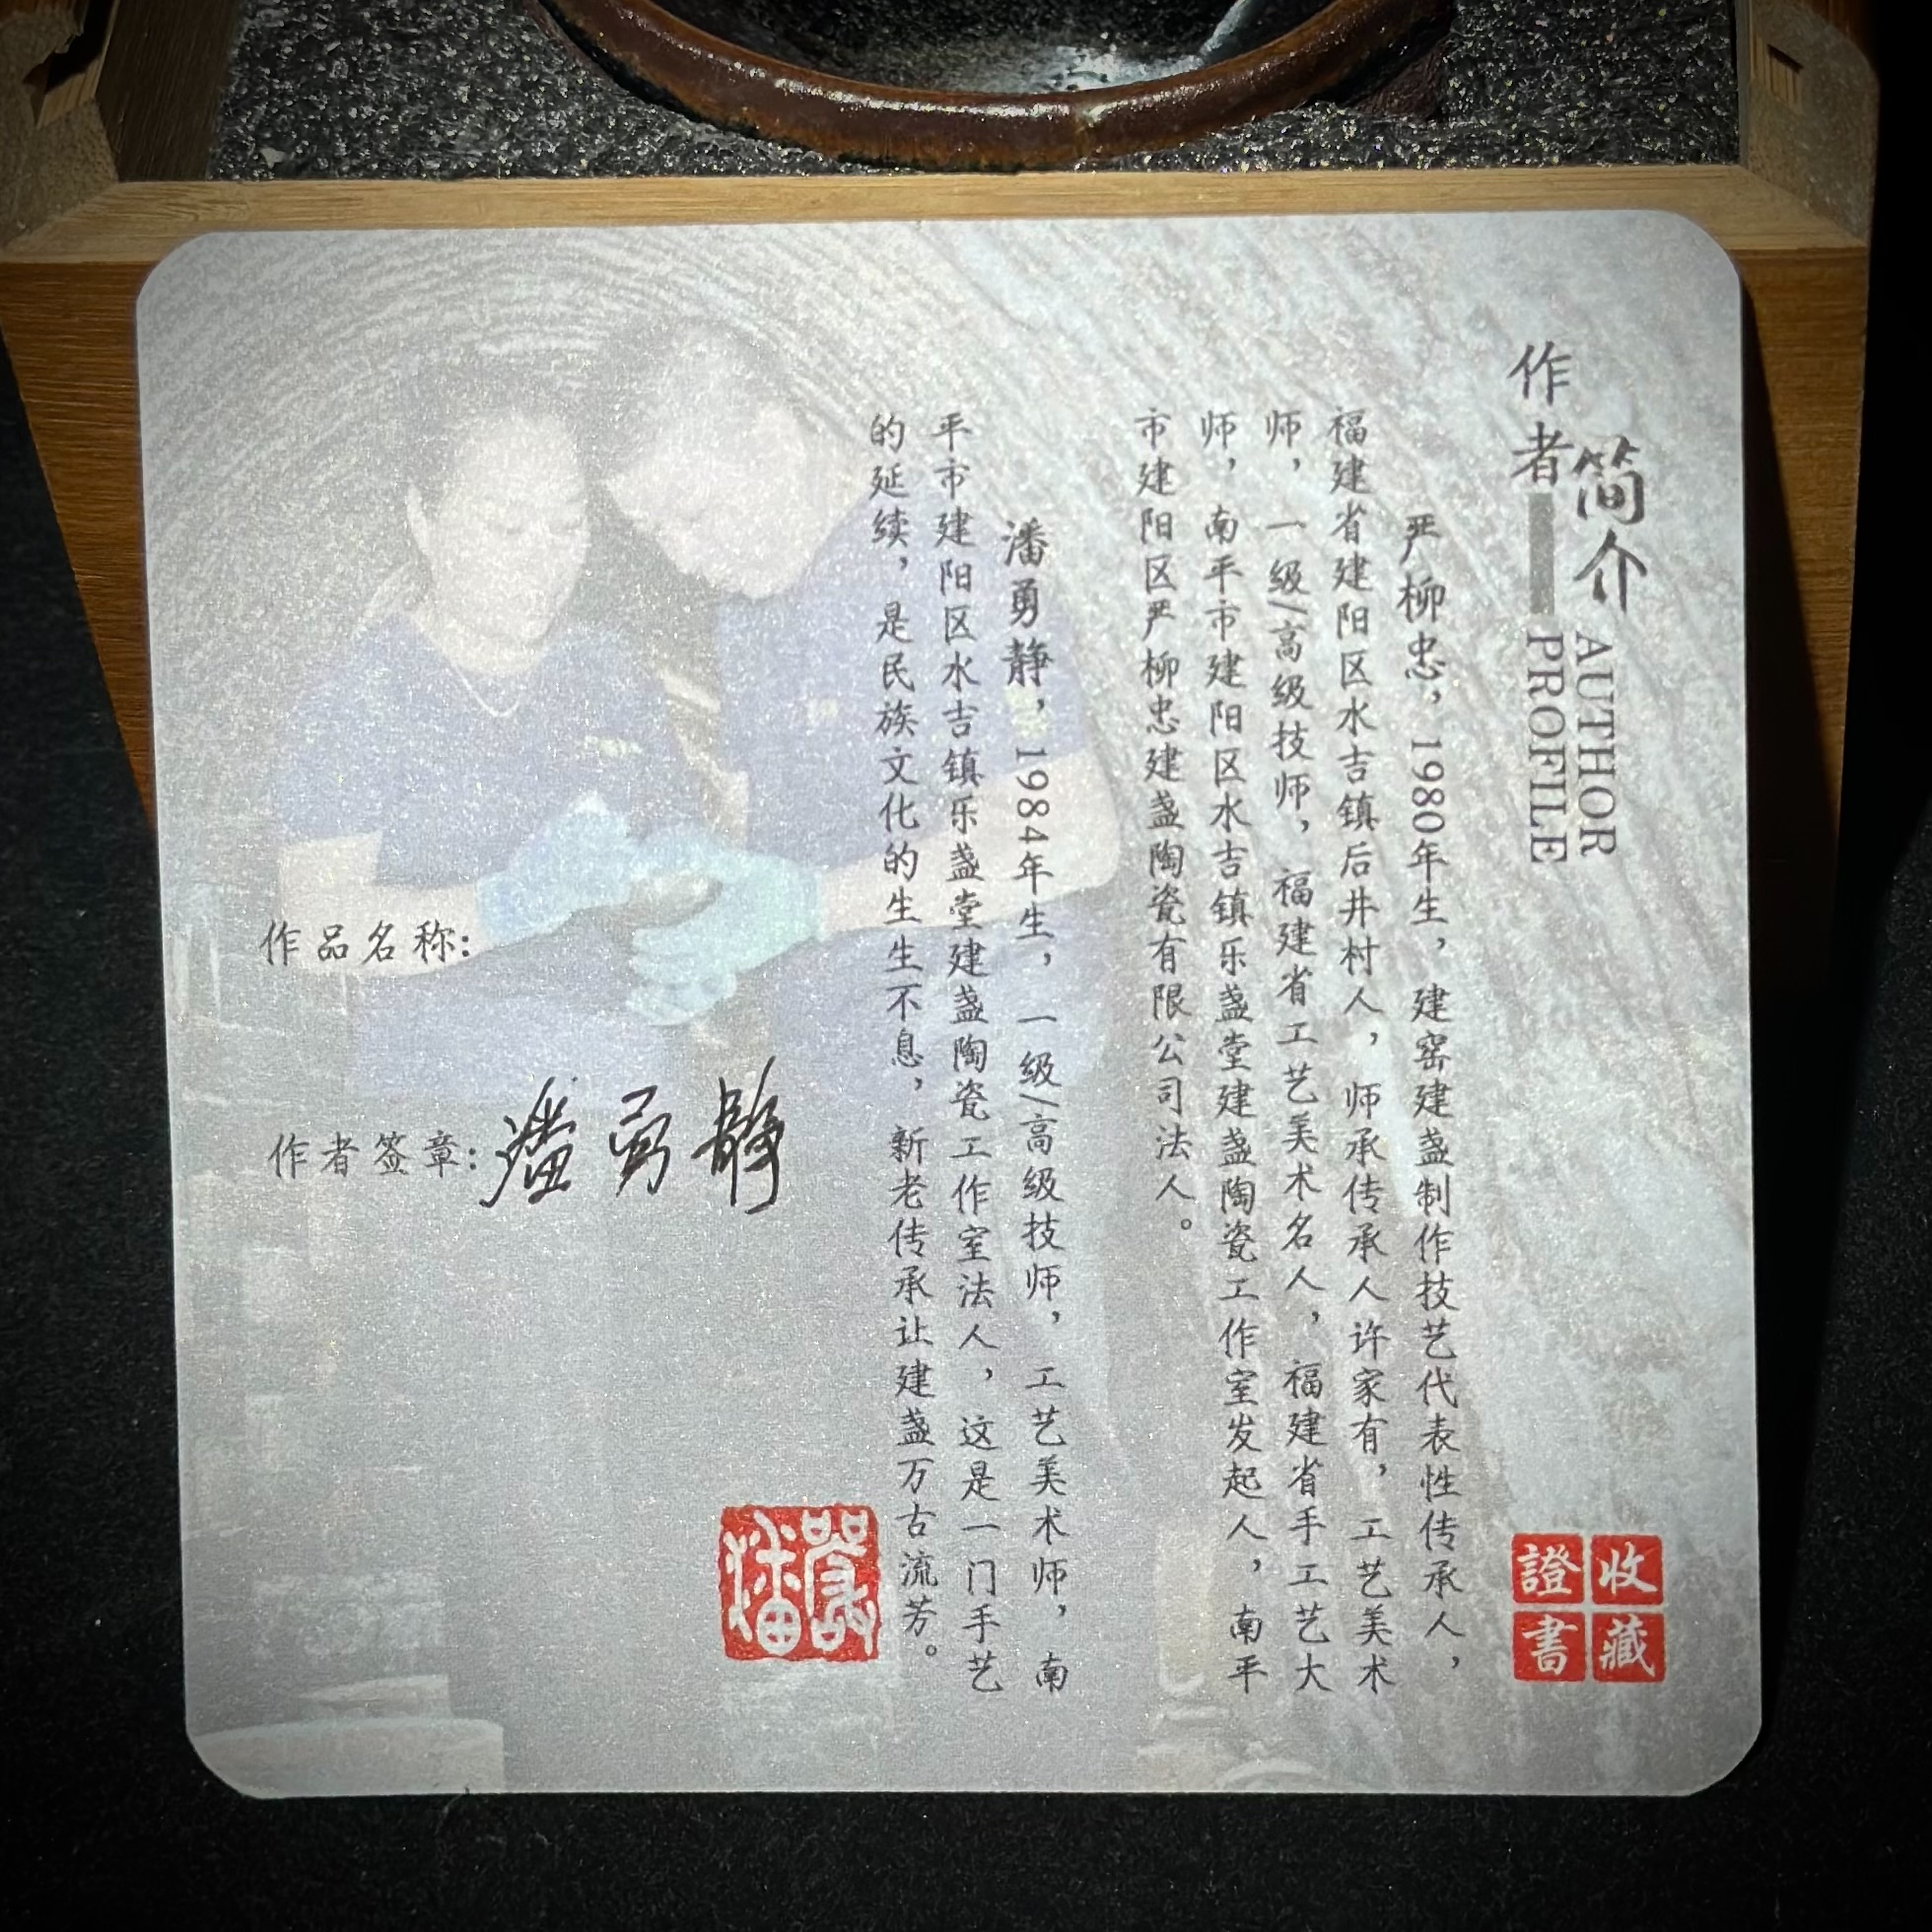 作者
简介
AUTHOR
PROFILE
严柳忠，1980年生，建窑建盏制作技艺代表性传承人，
福建省建阳区水吉镇后井村人，师承传承人许家有，工艺美术
师，一级/高级技师，福建省工艺美术名人，福建省手工艺大
师，南平市建阳区水吉镇乐盏堂建盏陶瓷工作室发起人，南平
市建阳区严柳忠建盏陶瓷有限公司法人。
潘勇静，1984年生，一级/高级技师，工艺美术师，南
平市建阳区水吉镇乐盏堂建盏陶瓷工作室法人，这是一门手艺
的延续，是民族文化的生生不息，新老传承让建盏万古流芳。
作品名称:
作者签章:潘勇静
收藏
證書